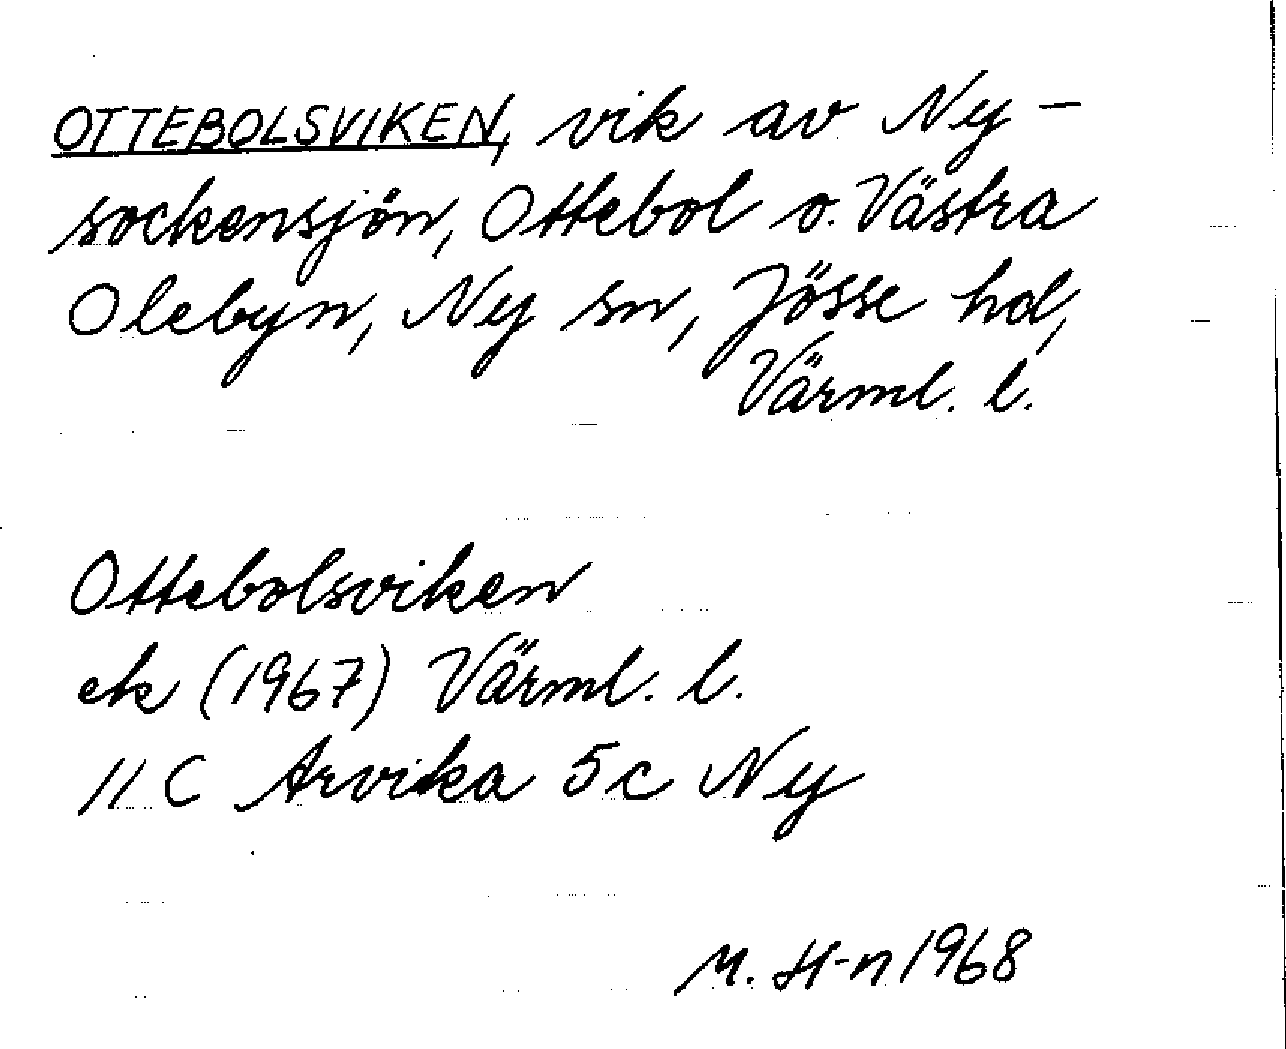 OTTEBOLSVIKEN, vik av Ny-
sockensjön, Ottebol o. Västra
Olebyn, Ny sn, Jösse hd,
Värml. l.
Ottebolsviken
ek (1967) Värml. l.
11 C Arvika 5c Ny
M. H-n 1968